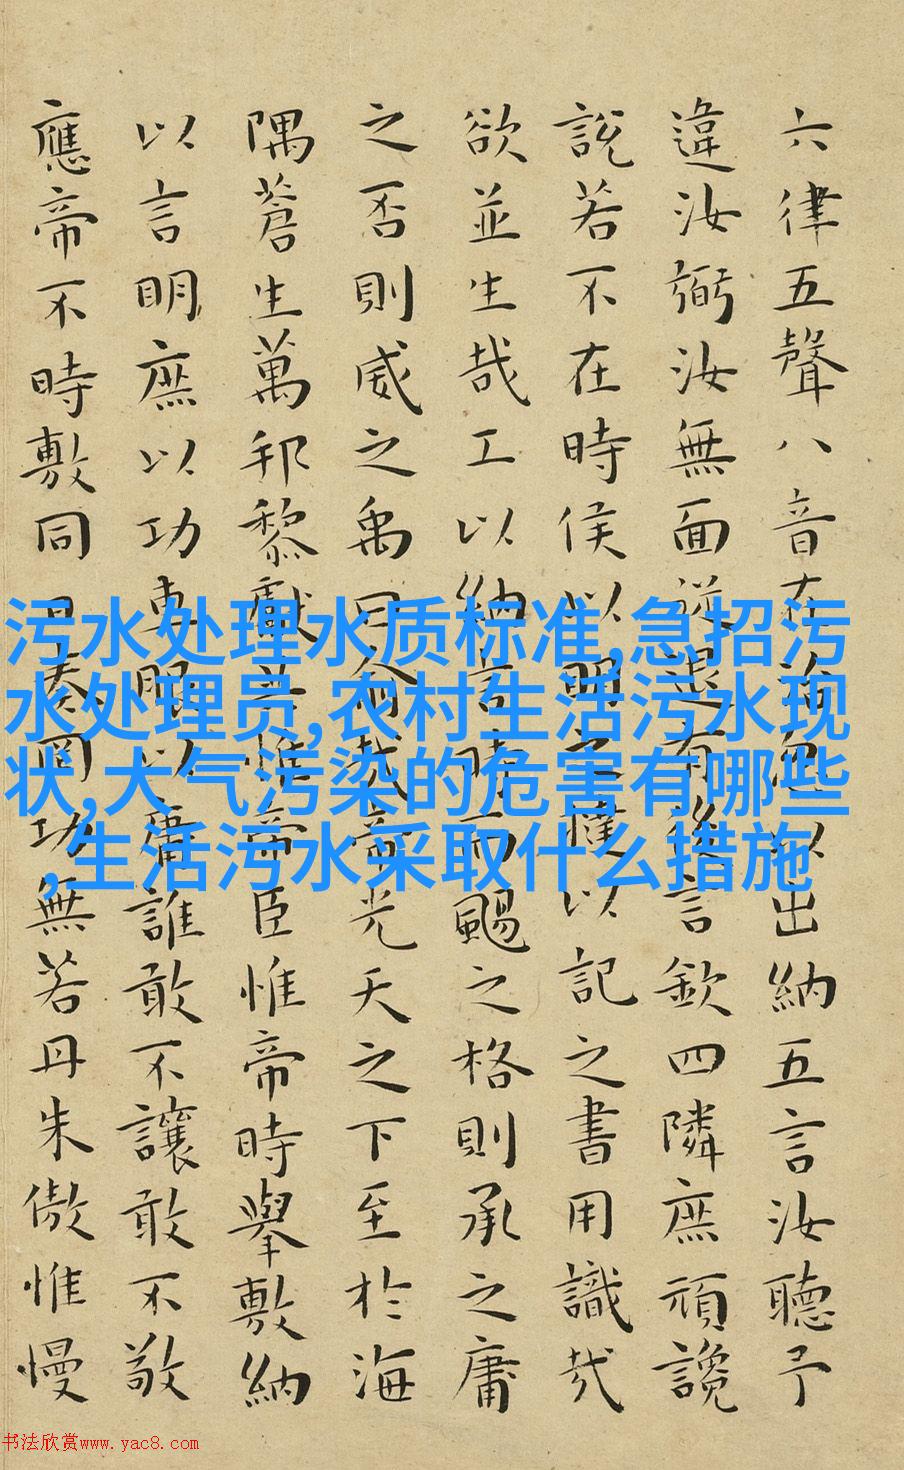 六律五聲八音在治忽以出納五言汝聽予
違汝弼汝無面從退有後言欽四隣庶頑讒
說若不在時侯以明之撻以記之書用識哉
欲並生哉工以納言時而颺之格則承之庸
之否則威之禹曰俞哉帝光天之下至於海
隅蒼生萬邦黎獻共惟帝臣惟帝時舉敷納
以言明庶以功車服以庸誰敢不讓敢不敬
應帝不時敷同日奏罔功無若丹朱傲惟慢
污水处理水质标准,急招污
水处理员,农村生活污水现
状,大气污染的危害有哪些
,生活污水采取什么措施
书法欣赏www.yac8.com